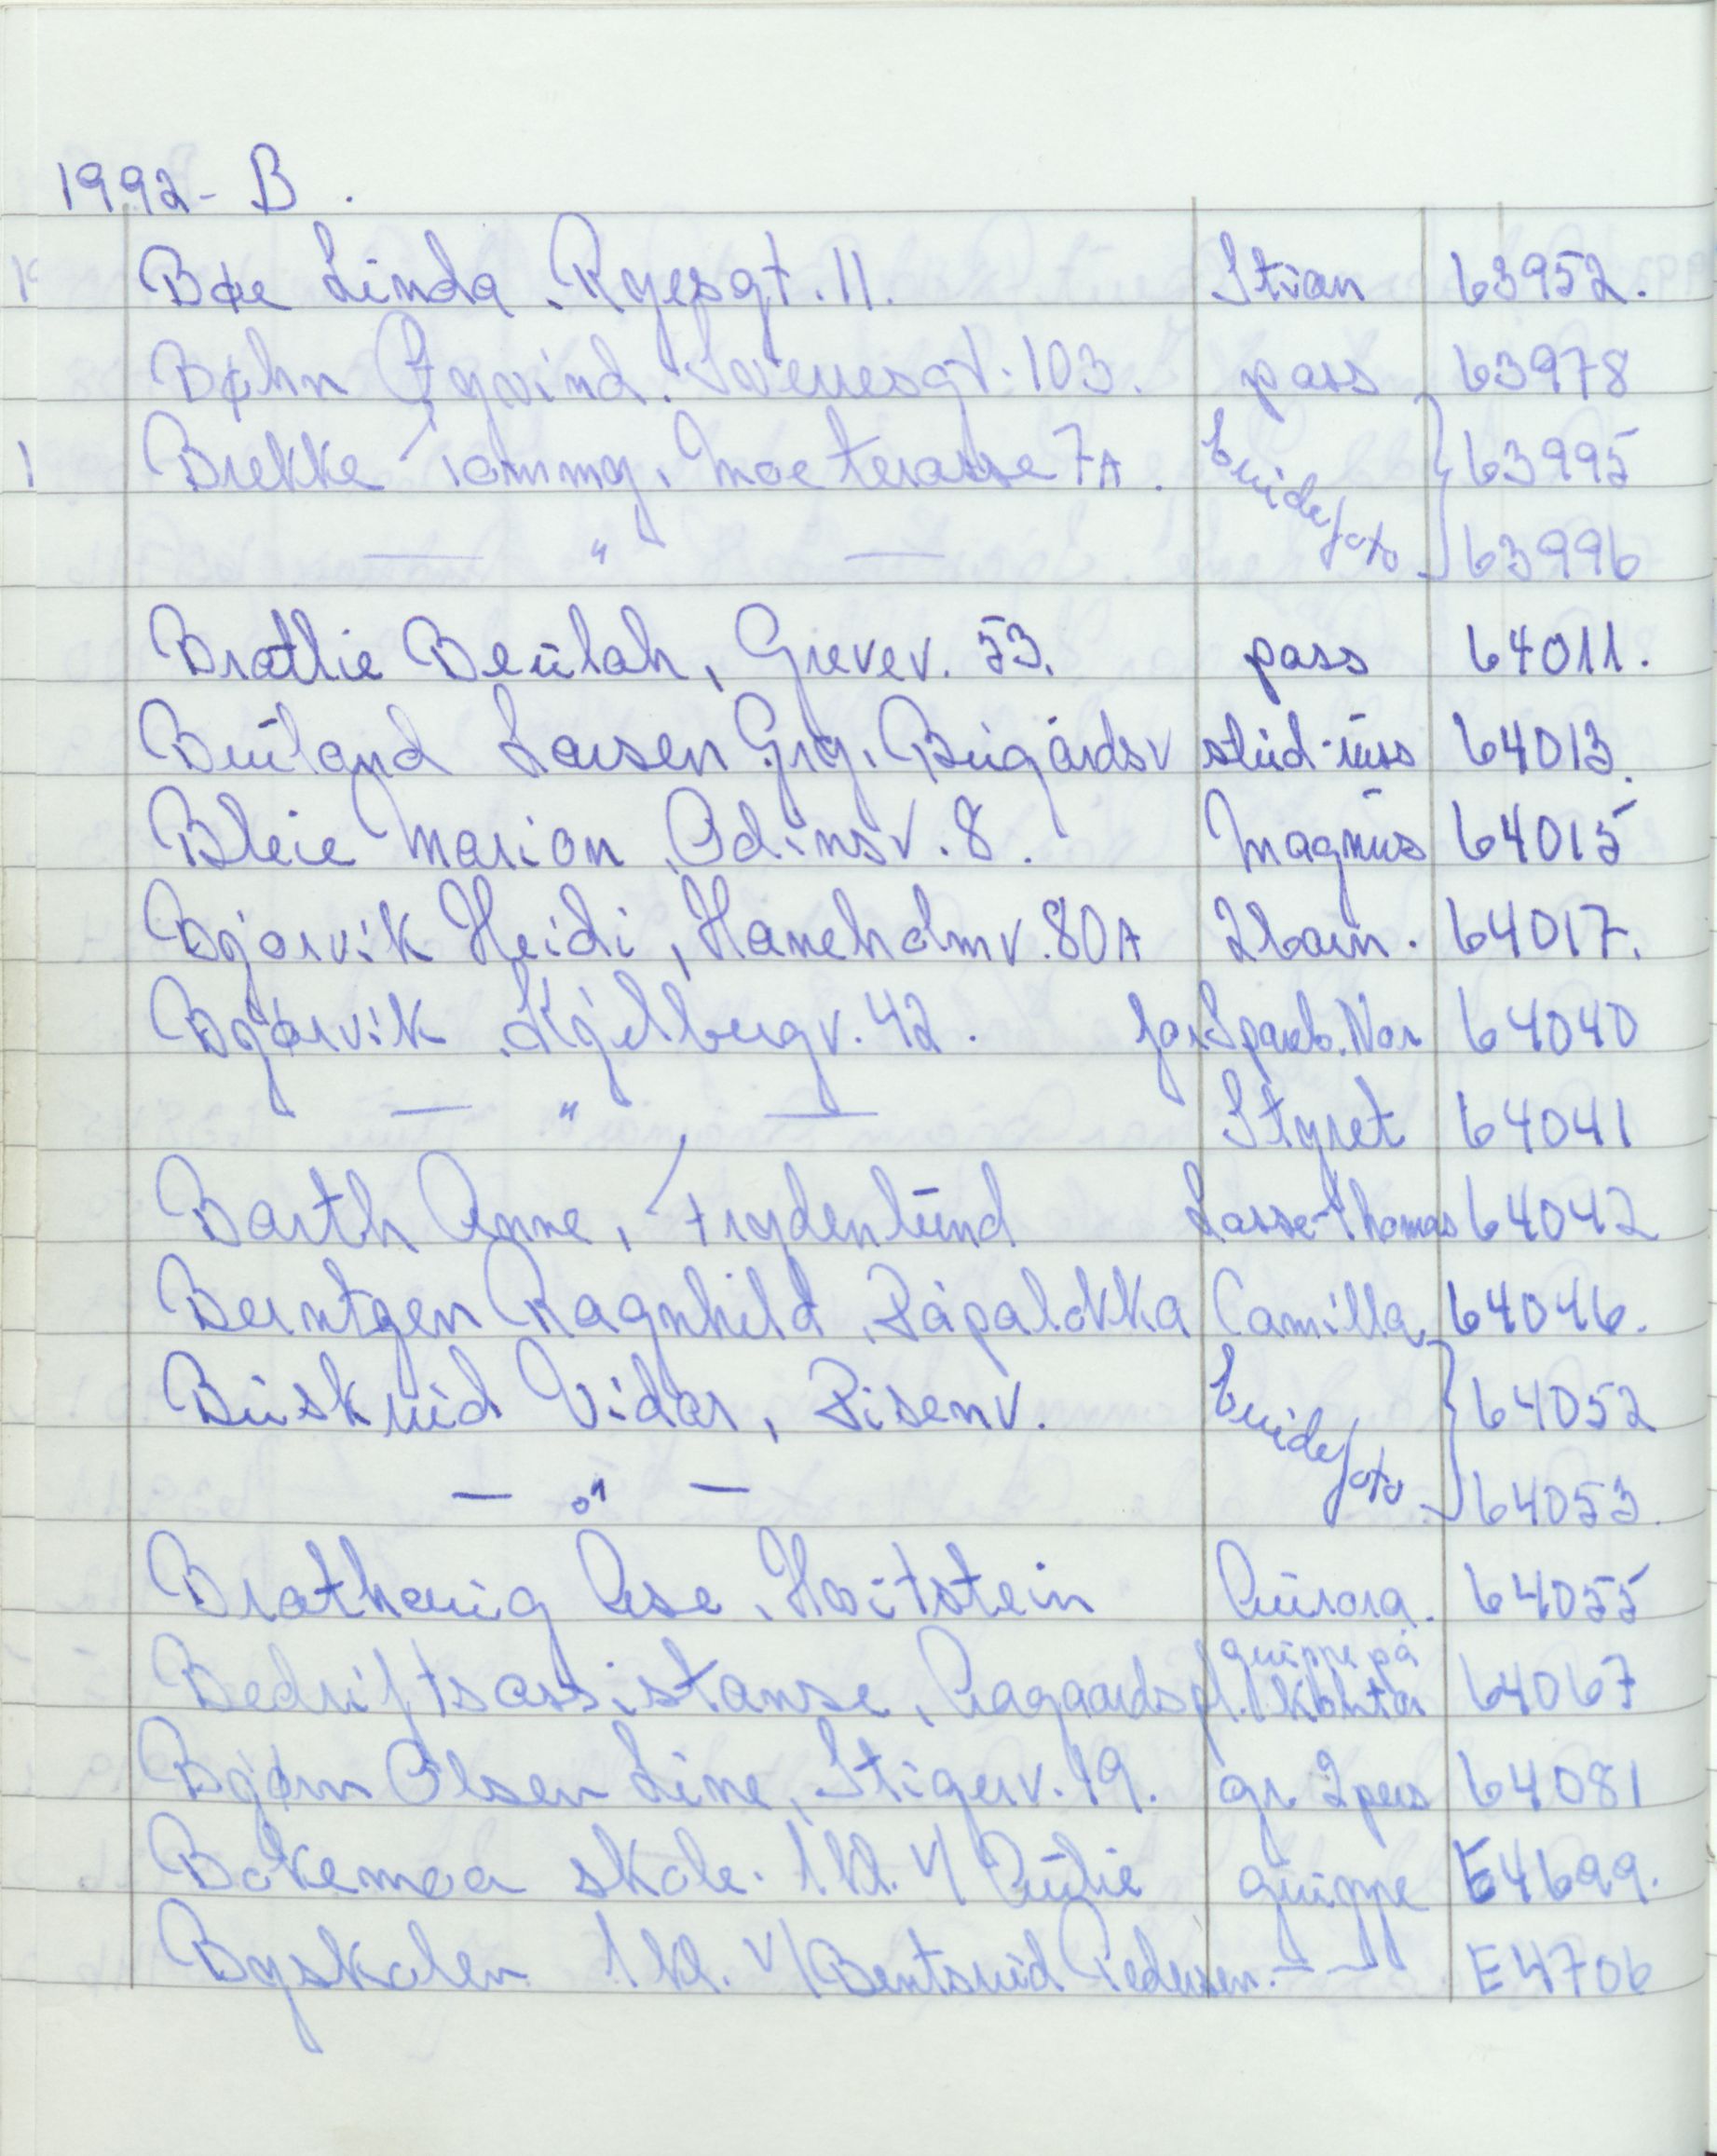 1992 - B.
Bøe Linda. Ryesgt. 11. Stian 63952.
Bøhn Øyvind. Sverresgt. 103. pass 63978
Brekke Tommy. Moe terasse 7A. brudefoto 63995
— " — 63996
Brathie Beulah, Grevev. 53. pass 64011.
Bruland Larsen Gry. Brigårdsv stud-lue 64013.
Bleie Marion, Odinsv. 8. Magnus 64015
Bjørvik Heidi, Haneholmv. 80A 2 barn. 64017.
Bjørvik Kjellbergv. 42. for Spareb. Nor 64040
— " — Styret 64041
Barth Anne, Frydenlund Lasse-Thomas 64042
Berntzen Ragnhild, Råpalokka Camilla 64046.
Buskrud Vidar, Risenv. brudefoto 64052
— " — 64053.
Brathaug Åse, Hvitstein Aurora. 64055
Bedriftsassistanse, Aagaards pl. gruppe på kontor 64067
Bjørn Olsen Line, Stigerv. 19. gr 2 pers 64081
Bokemoa skole. 1 kl. v/ Julie gruppe E4699.
Byskolen 1 kl. v/ Bentsrud Pedersen. — " — E4706